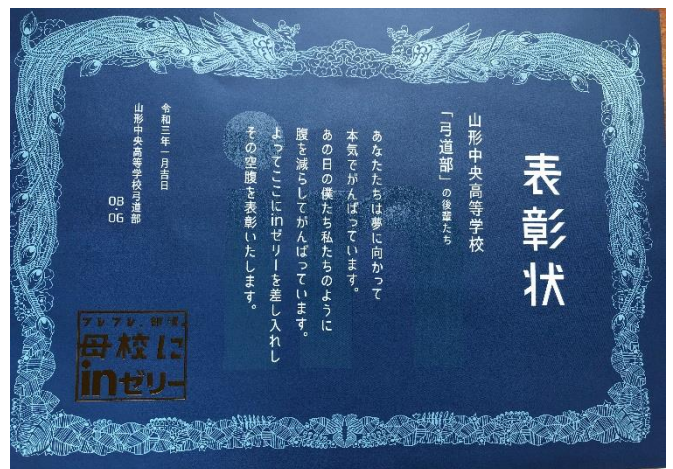 表彰状
山形中央高等学校
「弓道部」の後輩たち
あなたたちは夢に向かって
本気でがんばっています。
あの日の僕たち私たちのように
腹を減らしてがんばっています。
よってここにinゼリーを差し入れし
その空腹を表彰いたします。
令和三年一月吉日
山形中央高等学校弓道部
08-06
フレフレ、部活。
母校に
inゼリー